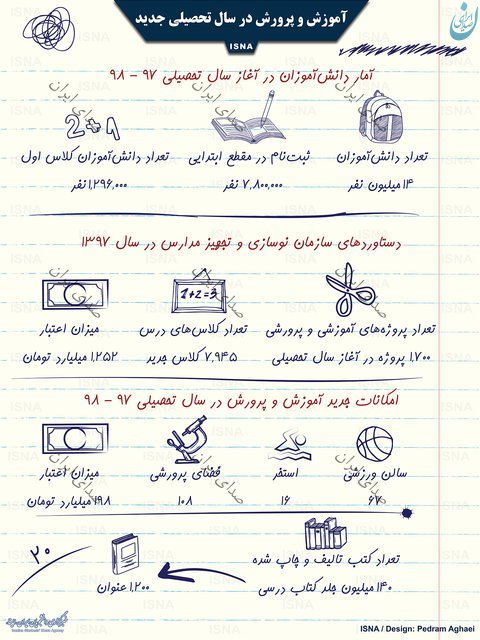 آموزش و پرورش در سال تحصیلی جدید
ISNA
آمار دانش‌آموزان در آغاز سال تحصیلی ۹۷ - ۹۸
2+1
تعداد دانش‌آموزان ثبت‌نام در مقطع ابتدایی تعداد دانش‌آموزان کلاس اول
۱۴ میلیون نفر ۷,۸۰۰,۰۰۰ نفر ۱,۲۹۶,۰۰۰ نفر
دستاوردهای سازمان نوسازی و تجهیز مدارس در سال ۱۳۹۷
1+2=3
تعداد پروژه‌های آموزشی و پرورشی تعداد کلاس‌های درس میزان اعتبار
۱,۷۰۰ پروژه در آغاز سال تحصیلی ۷,۹۴۵ کلاس جدید ۱,۲۵۲ میلیارد تومان
امکانات جدید آموزش و پرورش در سال تحصیلی ۹۷ - ۹۸
سالن ورزشی استخر فضای پرورشی میزان اعتبار
۶۷ ۱۶ ۱۰۸ ۱۹۸ میلیارد تومان
تعداد کتب تالیف و چاپ شده
۱۴۰ میلیون جلد کتاب درسی ۱,۲۰۰ عنوان
۲۰
صدای ایران
ISNA / Design: Pedram Aghaei